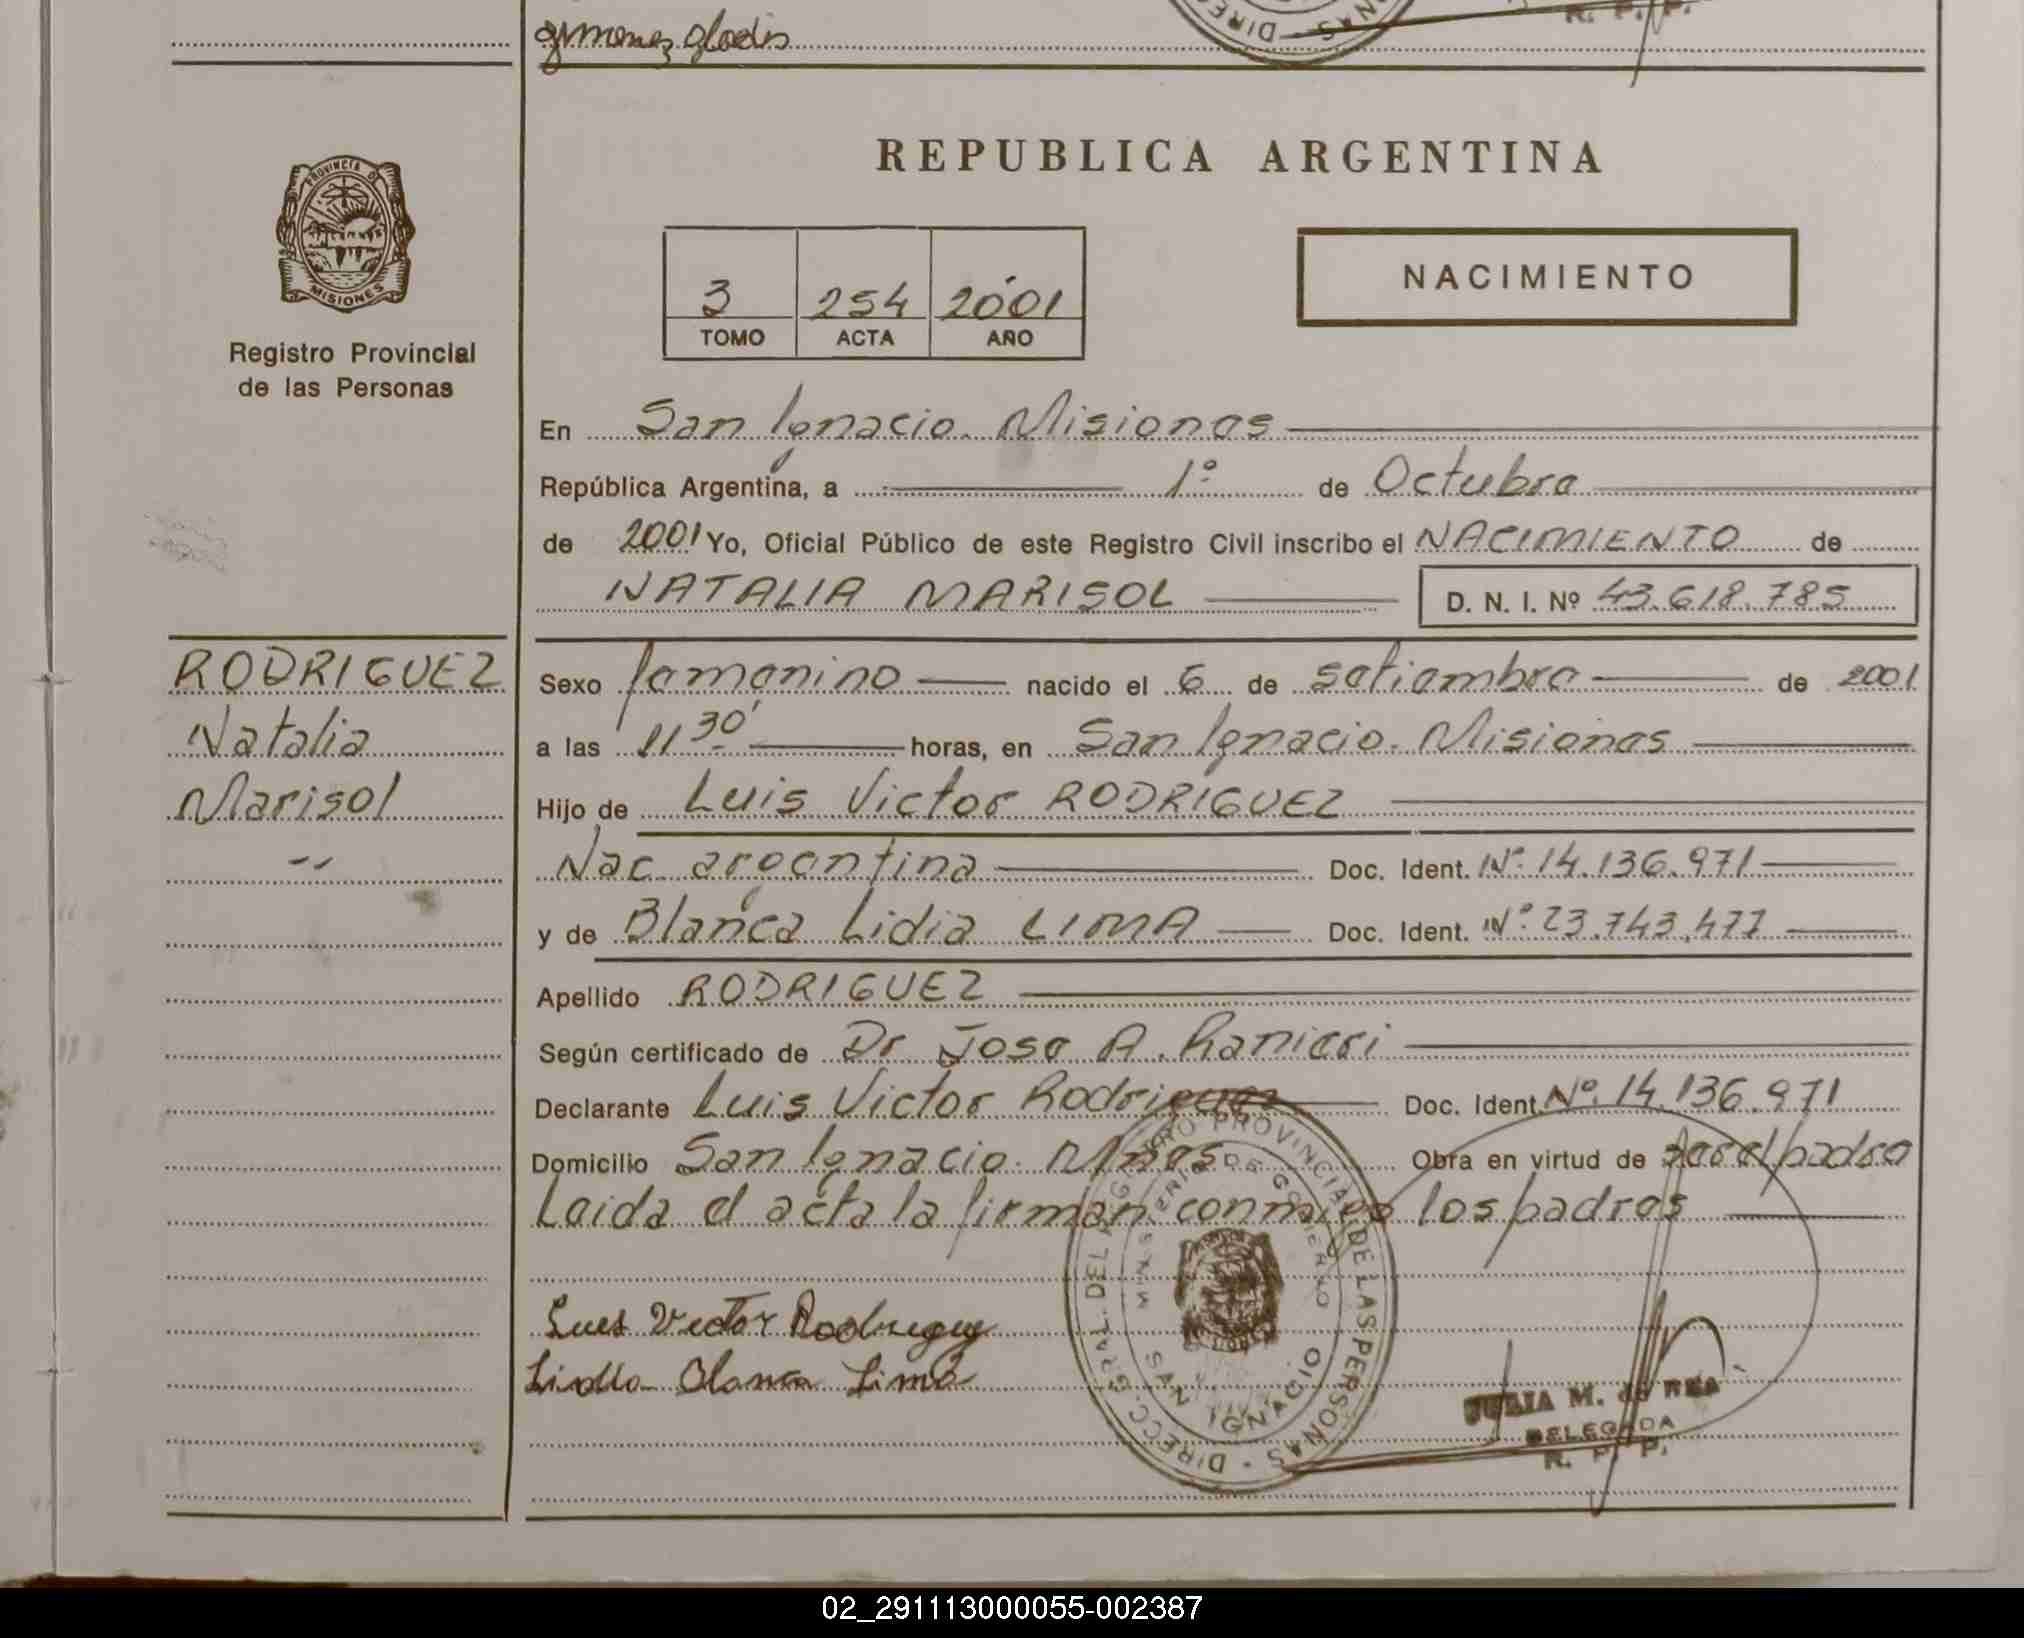 gimenez gladis
R. P. P.
REPUBLICA ARGENTINA
PROVINCIA D
MISIONES
Registro Provincial
de las Personas
3 254 2001
TOMO ACTA AÑO
NACIMIENTO
En San Ignacio. Misiones
República Argentina, a 1º de Octubre
de 2001 Yo, Oficial Público de este Registro Civil inscribo el NACIMIENTO de
NATALIA MARISOL D. N. I. Nº 43.618.785
RODRIGUEZ
Natalia
Marisol
Sexo femenino nacido el 6 de setiembre de 2001
a las 11 30' horas, en San Ignacio. Misiones
Hijo de Luis Victor RODRIGUEZ
Nac. argentina Doc. Ident. Nº 14.136.971
y de Blanca Lidia LIMA Doc. Ident. Nº 23.743.477
Apellido RODRIGUEZ
Según certificado de Dr Jose A. Ranieri
Declarante Luis Victor Rodriguez Doc. Ident. Nº 14.136.971
Domicilio San Ignacio. Mnes Obra en virtud de ser el padre
Leida el acta la firman conmigo los padres
Luis Victor Rodriguez
Lidia Blanca Lima
DIRECC. GRAL. DEL REGISTRO PROVINCIAL DE LAS PERSONAS
MINISTERIO DE GOBIERNO
SAN IGNACIO
JULIA M. de REA
DELEGADA
R. P. P.
02_291113000055-002387